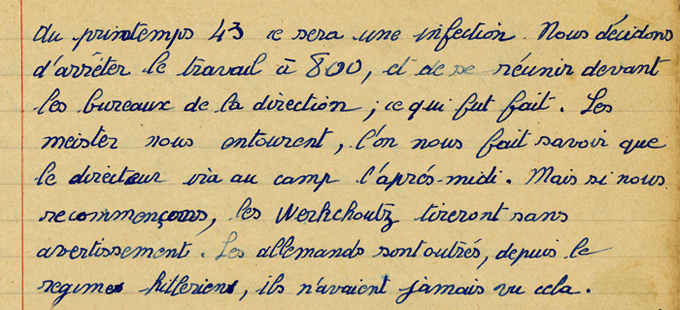 du printemps 43 ce sera une infection. Nous décidons
d'arrêter le travail à 800, et de se réunir devant
les bureaux de la direction ; ce qui fut fait. Les
meister nous entourent, l'on nous fait savoir que
le directeur ira au camp l'après-midi. Mais si nous
recommençons, les Werkchoutz tireront sans
avertissement. Les allemands sont outrés, depuis le
regime hitlerien, ils n'avaient jamais vu cela.